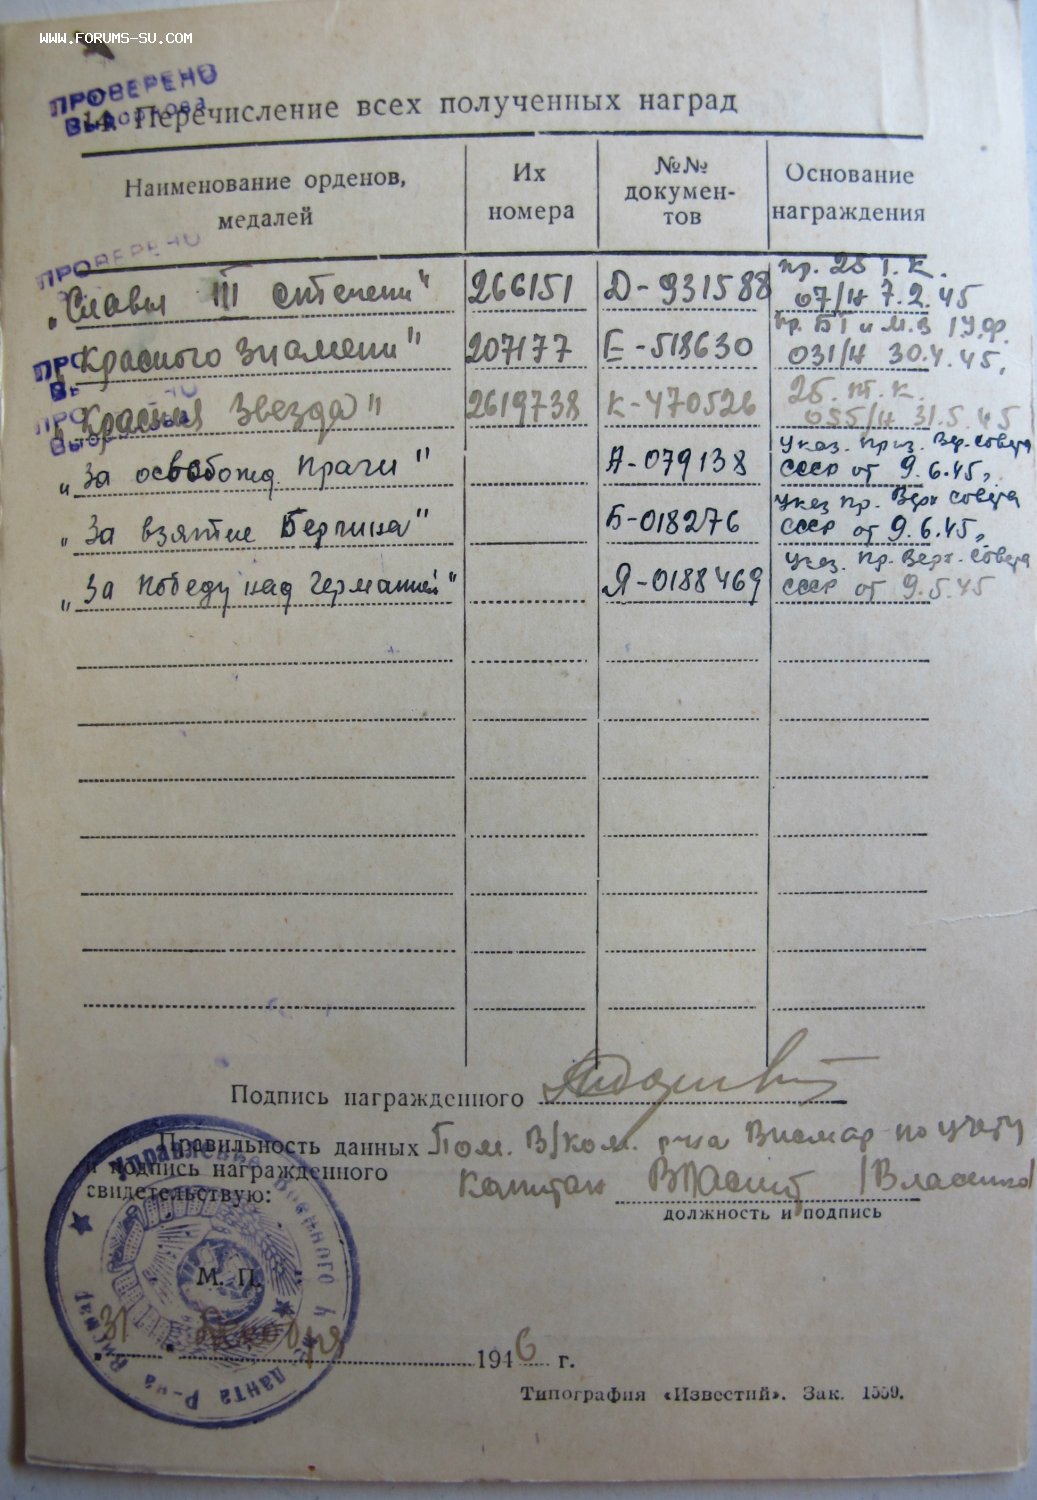 WWW.FORUMS-SU.COM
ПРОВЕРЕНО
14. Перечисление всех полученных наград
Наименование орденов, медалей
Их номера
№№ докумен-тов
Основание награждения
ПРОВЕРЕНО
„Славы III степени" 266151 Д-931588 пр. 25 т.к. 07/н 7.2.45
„Красного Знамени" 207177 Е-518630 пр. БТ и М.В 1 У.Ф. 031/н 30.4.45,
„Красная Звезда" 2619738 К-470526 25. т.к. 055/н 31.5.45
„За освобожд. Праги" А-079138 Указ. През. Вер. Совета СССР от 9.6.45,
„За взятие Берлина" Б-018276 Указ Пр. Верх Совета СССР от 9.6.45,
„За Победу над Германией" Я-0188469 Указ. Пр. Верх. Совета СССР от 9.5.45
Подпись награжденного
Правильность данных Пом. В/ком. р-на Висмар по учету
и подпись награжденного Капитан
свидетельствую:
должность и подпись
Управление Военного Коменданта Р-на Висмар
М. П.
„31" 1946 г.
Типография «Известий». Зак. 1559.